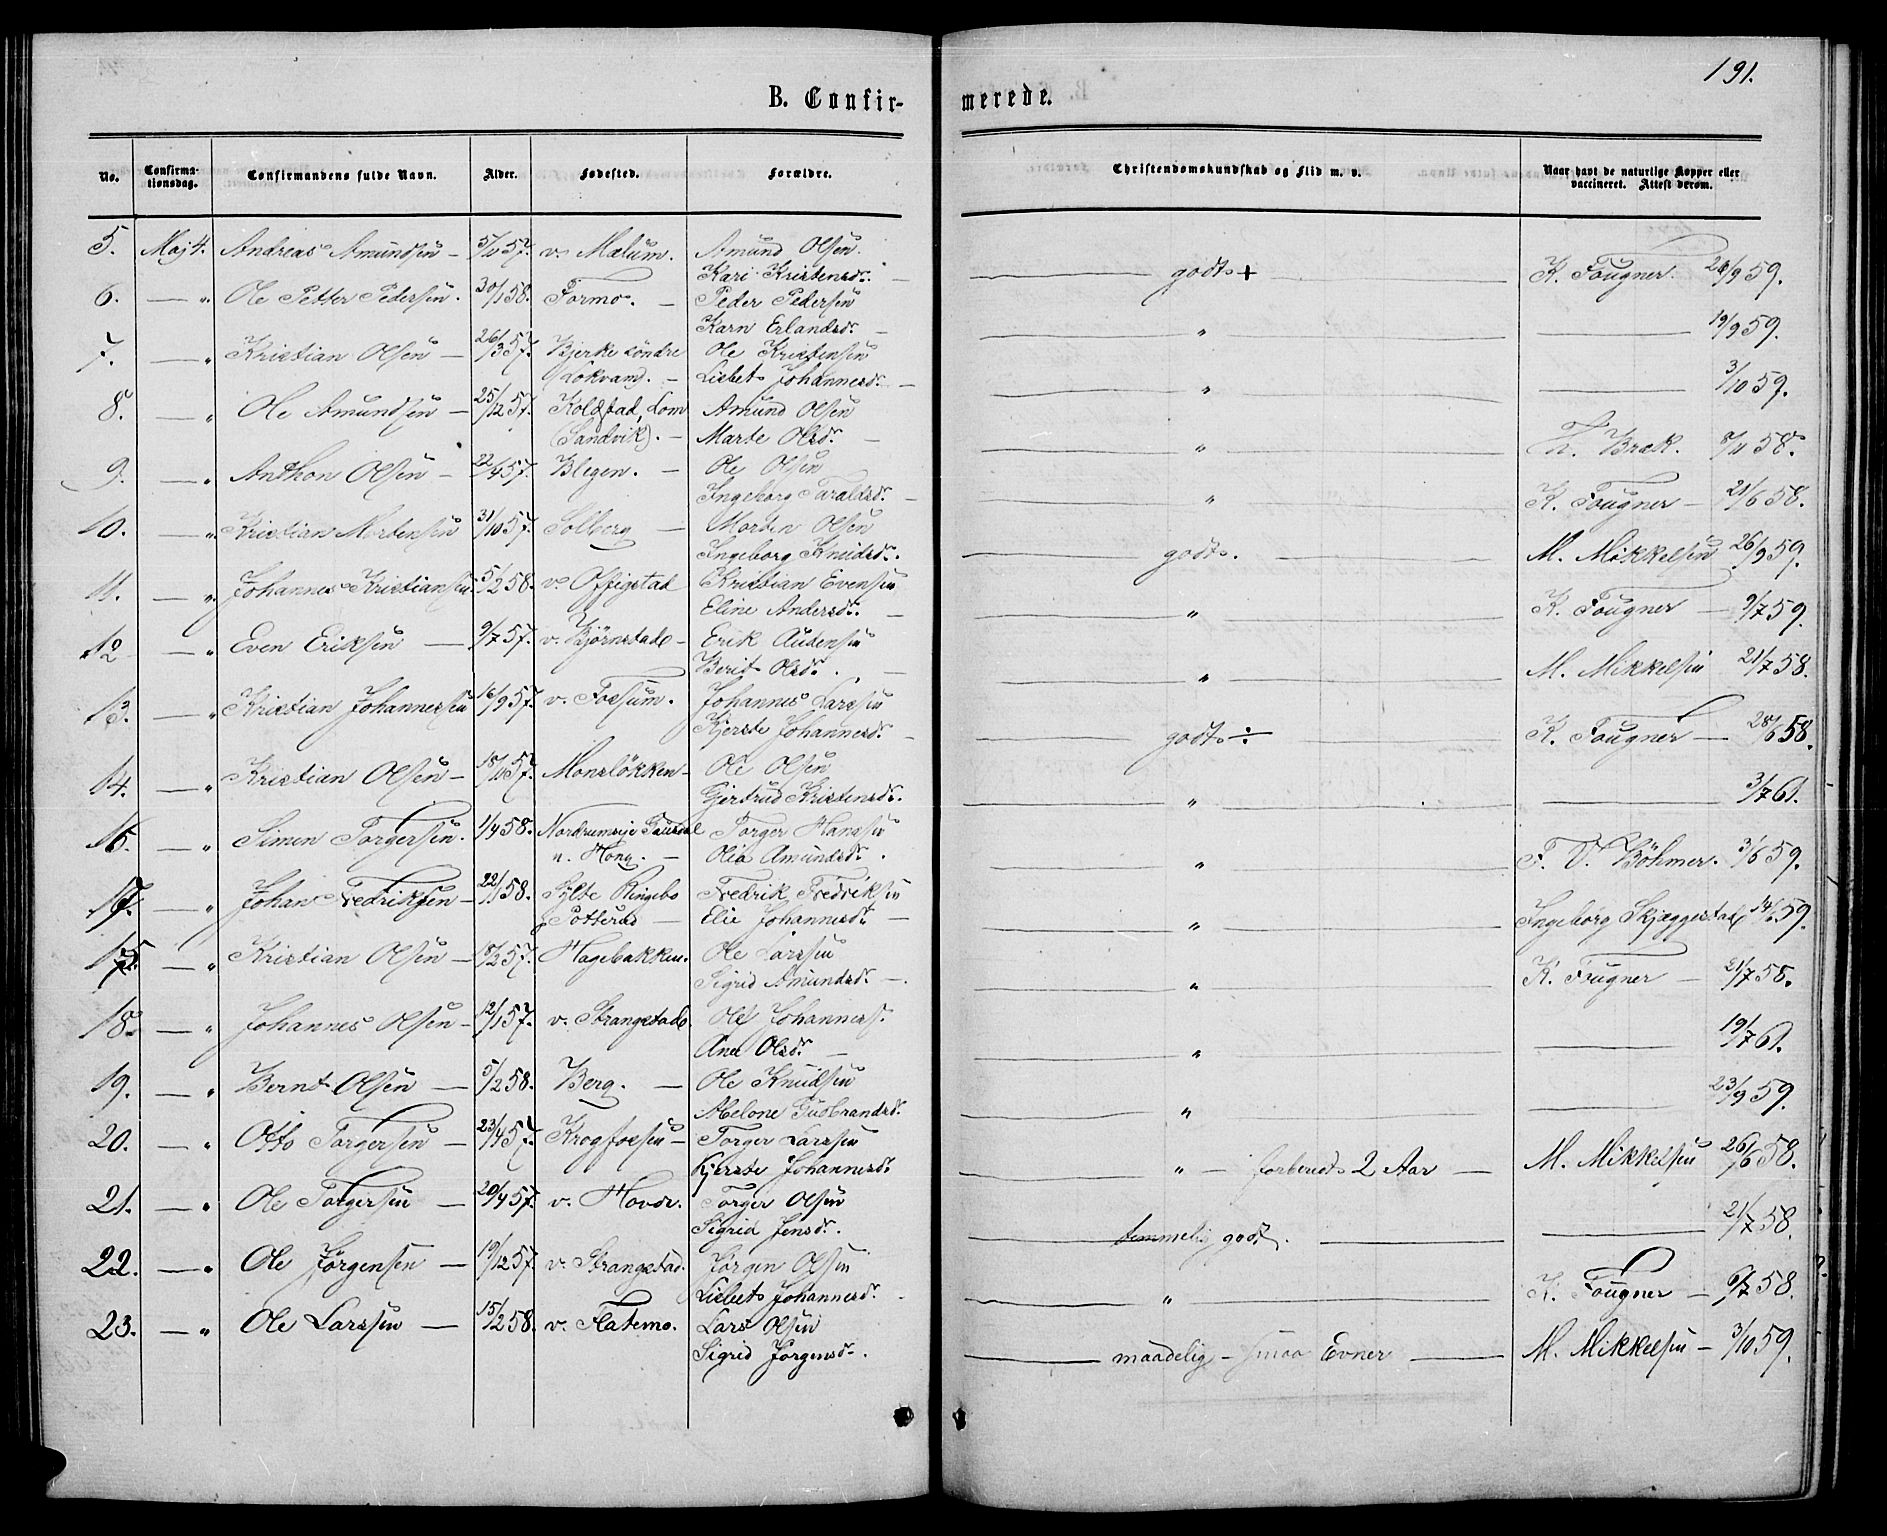 191.
B. Confirmerede.
No. Confirmationsdag. Confirmandens fulde Navn. Alder. Fødested. Forældre. Christendomskundskab og Flid m. v. Naar havt de naturlige Kopper eller vaccineret. Attest derom.
5. Maj 4. Andreas Amundsen - 5/11 57. v. Mælum. Amund Olsen.
Kari Kristensdr. - godt + K. Fougner. 24/9 59.
6. — " Ole Petter Pedersen. 30/1 58. Formo. - Peder Pedersen
Karn Erlandsdr. - " 19/9 59.
7. — " Kristian Olsen - 26/3 57. Bjerke söndre Ole Kristensen
(Lokvam). - Lisbet Johannesdr. - " 3/10 59.
8. — " Ole Amundsen - 25/12 57. Kolstad, Lom Amund Olsen
(Sandvik). - Marte Olsdr. - " Th. Bræk. 8/11 58.
9. — " Anthon Olsen - 22/4 57. Blegen. - Ole Olsen
Ingeborg Taraldsdr. - " K. Fougner - 21/6 58.
10. — " Kristian Mortensen 31/10 57. Solberg - Morten Olsen
Ingeborg Knudsdr. godt. M. Mikkelsen 26/9 59.
11. — " Johannes Kristiansen 5/2 58. v. Offigstad Kristian Evensen
Eline Andersdr. - " K. Fougner - 9/7 59.
12 — " Even Eriksen — 9/7 57. v. Bjørnstad - Erik Audensen
Berit Olsdr. - " M. Mikkelsen 21/7 58.
13. — " Kristian Johannessen 16/9 57. v. Fossum. Johannes Larssen
Kjerste Johannesdr. - godt ÷ K. Fougner — 28/6 58.
14. — " Kristian Olsen - 18/11 57. Monsløkken - Ole Olsen
Gjertrud Kristensdr. " 3/7 61.
16. — " Simen Torgersen. 1/4 58. Nordrumseje Gausdal Torger Hanssen
n. Hong. - Olia Amundsdr. " F. V. Böhmer. 3/6 59.
17. — " Johan Fredriksen - 22/1 58. Sylte Ringebo Fredrik Fredriksen
Potterud - Elie Johannesdr. - " Ingeborg Skjæggestad 14/6 59.
15. — " Kristian Olsen - 18/2 57. Hagebakken. Ole Larssen
Sigrid Amundsdr. -. " K. Fougner - 21/7 58.
18. — " Johannes Olsen - 12/1 57. v. Strangstad. Ole Johanness.
Ane Olsdr. - " 19/7 61.
19. — " Bernt Olsen — 5/2 58. Berg. - Ole Knudsen
Abelone Gudbrandsdr. " 23/9 59.
20. — " Otto Torgersen - 23/4 57. Krogfossen - Torger Larssen
Kjerste Johannesdr. " - forberedt 2 Aar — M. Mikkelsen 26/6 58.
21. — " Ole Torgersen - 20/4 57. v. Hovde. Torger Olsen
Sigrid Jensdr. temmelig godt. 21/7 58.
22. — " Ole Jørgensen - 19/12 57. v. Strangstad. Jørgen Olsen
Lisbet Johannesdr. - " K. Fougner - 6/7 58.
23. — " Ole Larssen — 15/2 58. v. Flatemo. Lars Olsen
Sigrid Jørgensdr. maadelig - smaa Evner — M. Mikkelsen - 3/10 59.